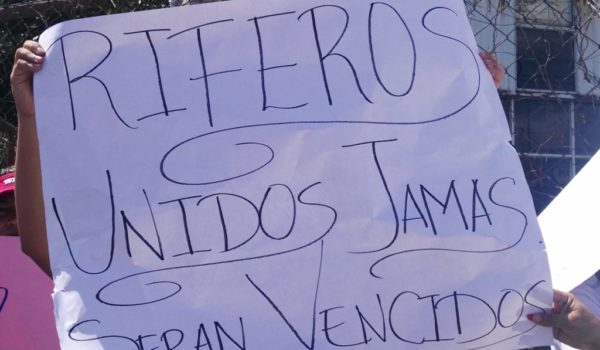 RIFEROS
UNIDOS JAMAS
SERAN VENCIDOS